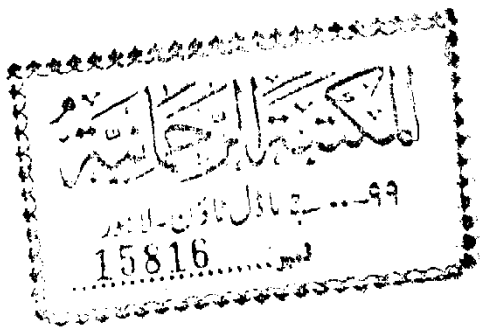 المكتبة الرحمانية
۹۹... جے ماڈل ٹاؤن۔ لاہور
نمبر 15816